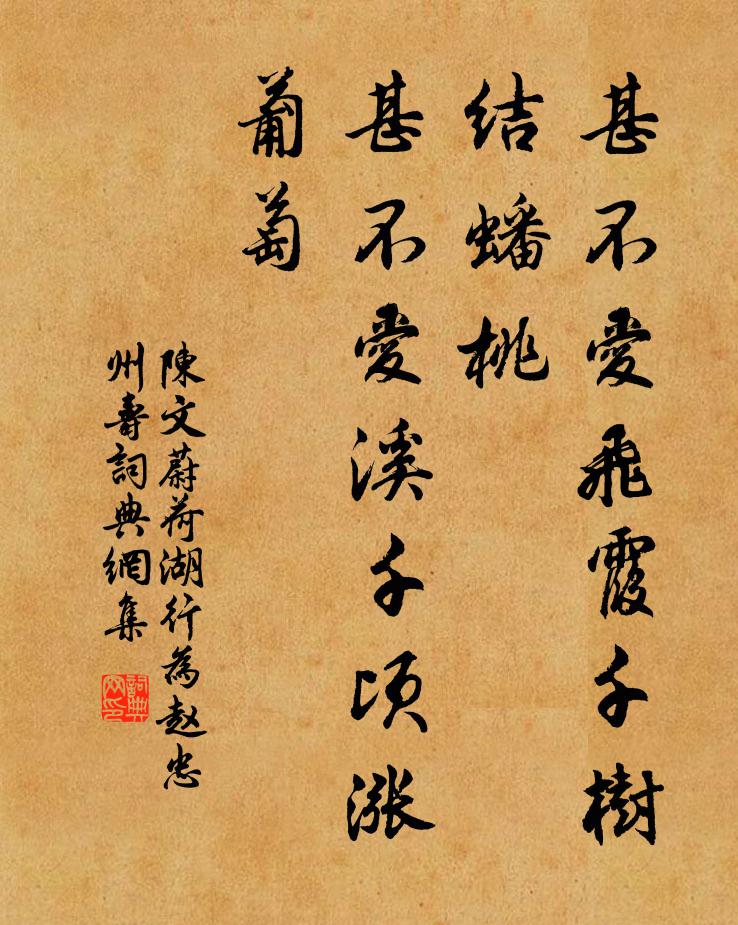 甚不愛飛霞千樹
結蟠桃
甚不愛溪千頃漲
葡萄
陳文蔚荷湖行為趙忠
州壽詞典網集
詞典
网印